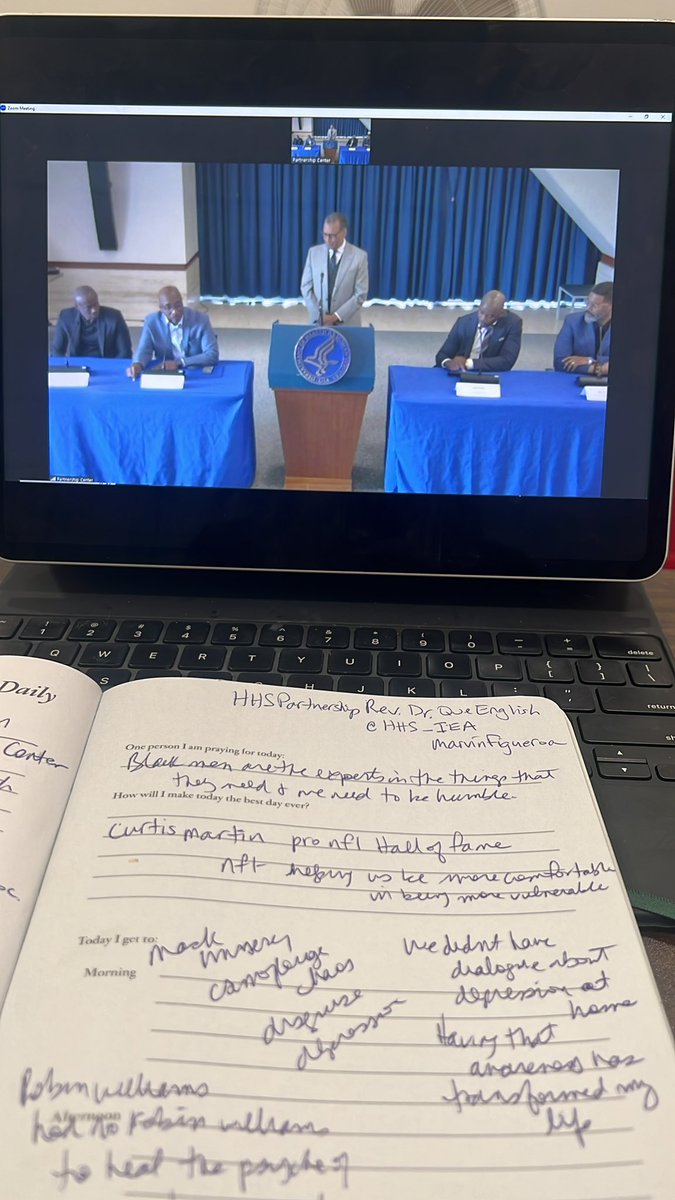 Zoom Meeting
Partnership Center
Partnership Center
! 1 @ 2 # 3 $ 4 % 5 ^ 6 & 7 * 8 ( 9 ) 0 — - + = delete
Q W E R T Y U I O P { [ } ] | \
S H J K L : ; " ' return
Daily
Center
HHSPartnership Rev. Dr. Que English
@HHS_IEA
Marvin Figueroa
One person I am praying for today:
Black men are the experts in the things that
they need & we need to be humble.
How will I make today the best day ever?
Curtis Martin pro nfl Hall of fame
nft helping us be more comfortable
in being more vulnerable
Today I get to:
Morning
mask
misery
camoflouge
chaos
disguise
depression
we didn't have
dialogue about
depression at
home
Having that
awareness has
transformed my
life
Robin Williams
Afternoon
had no Robin Williams
to heal the psyche of